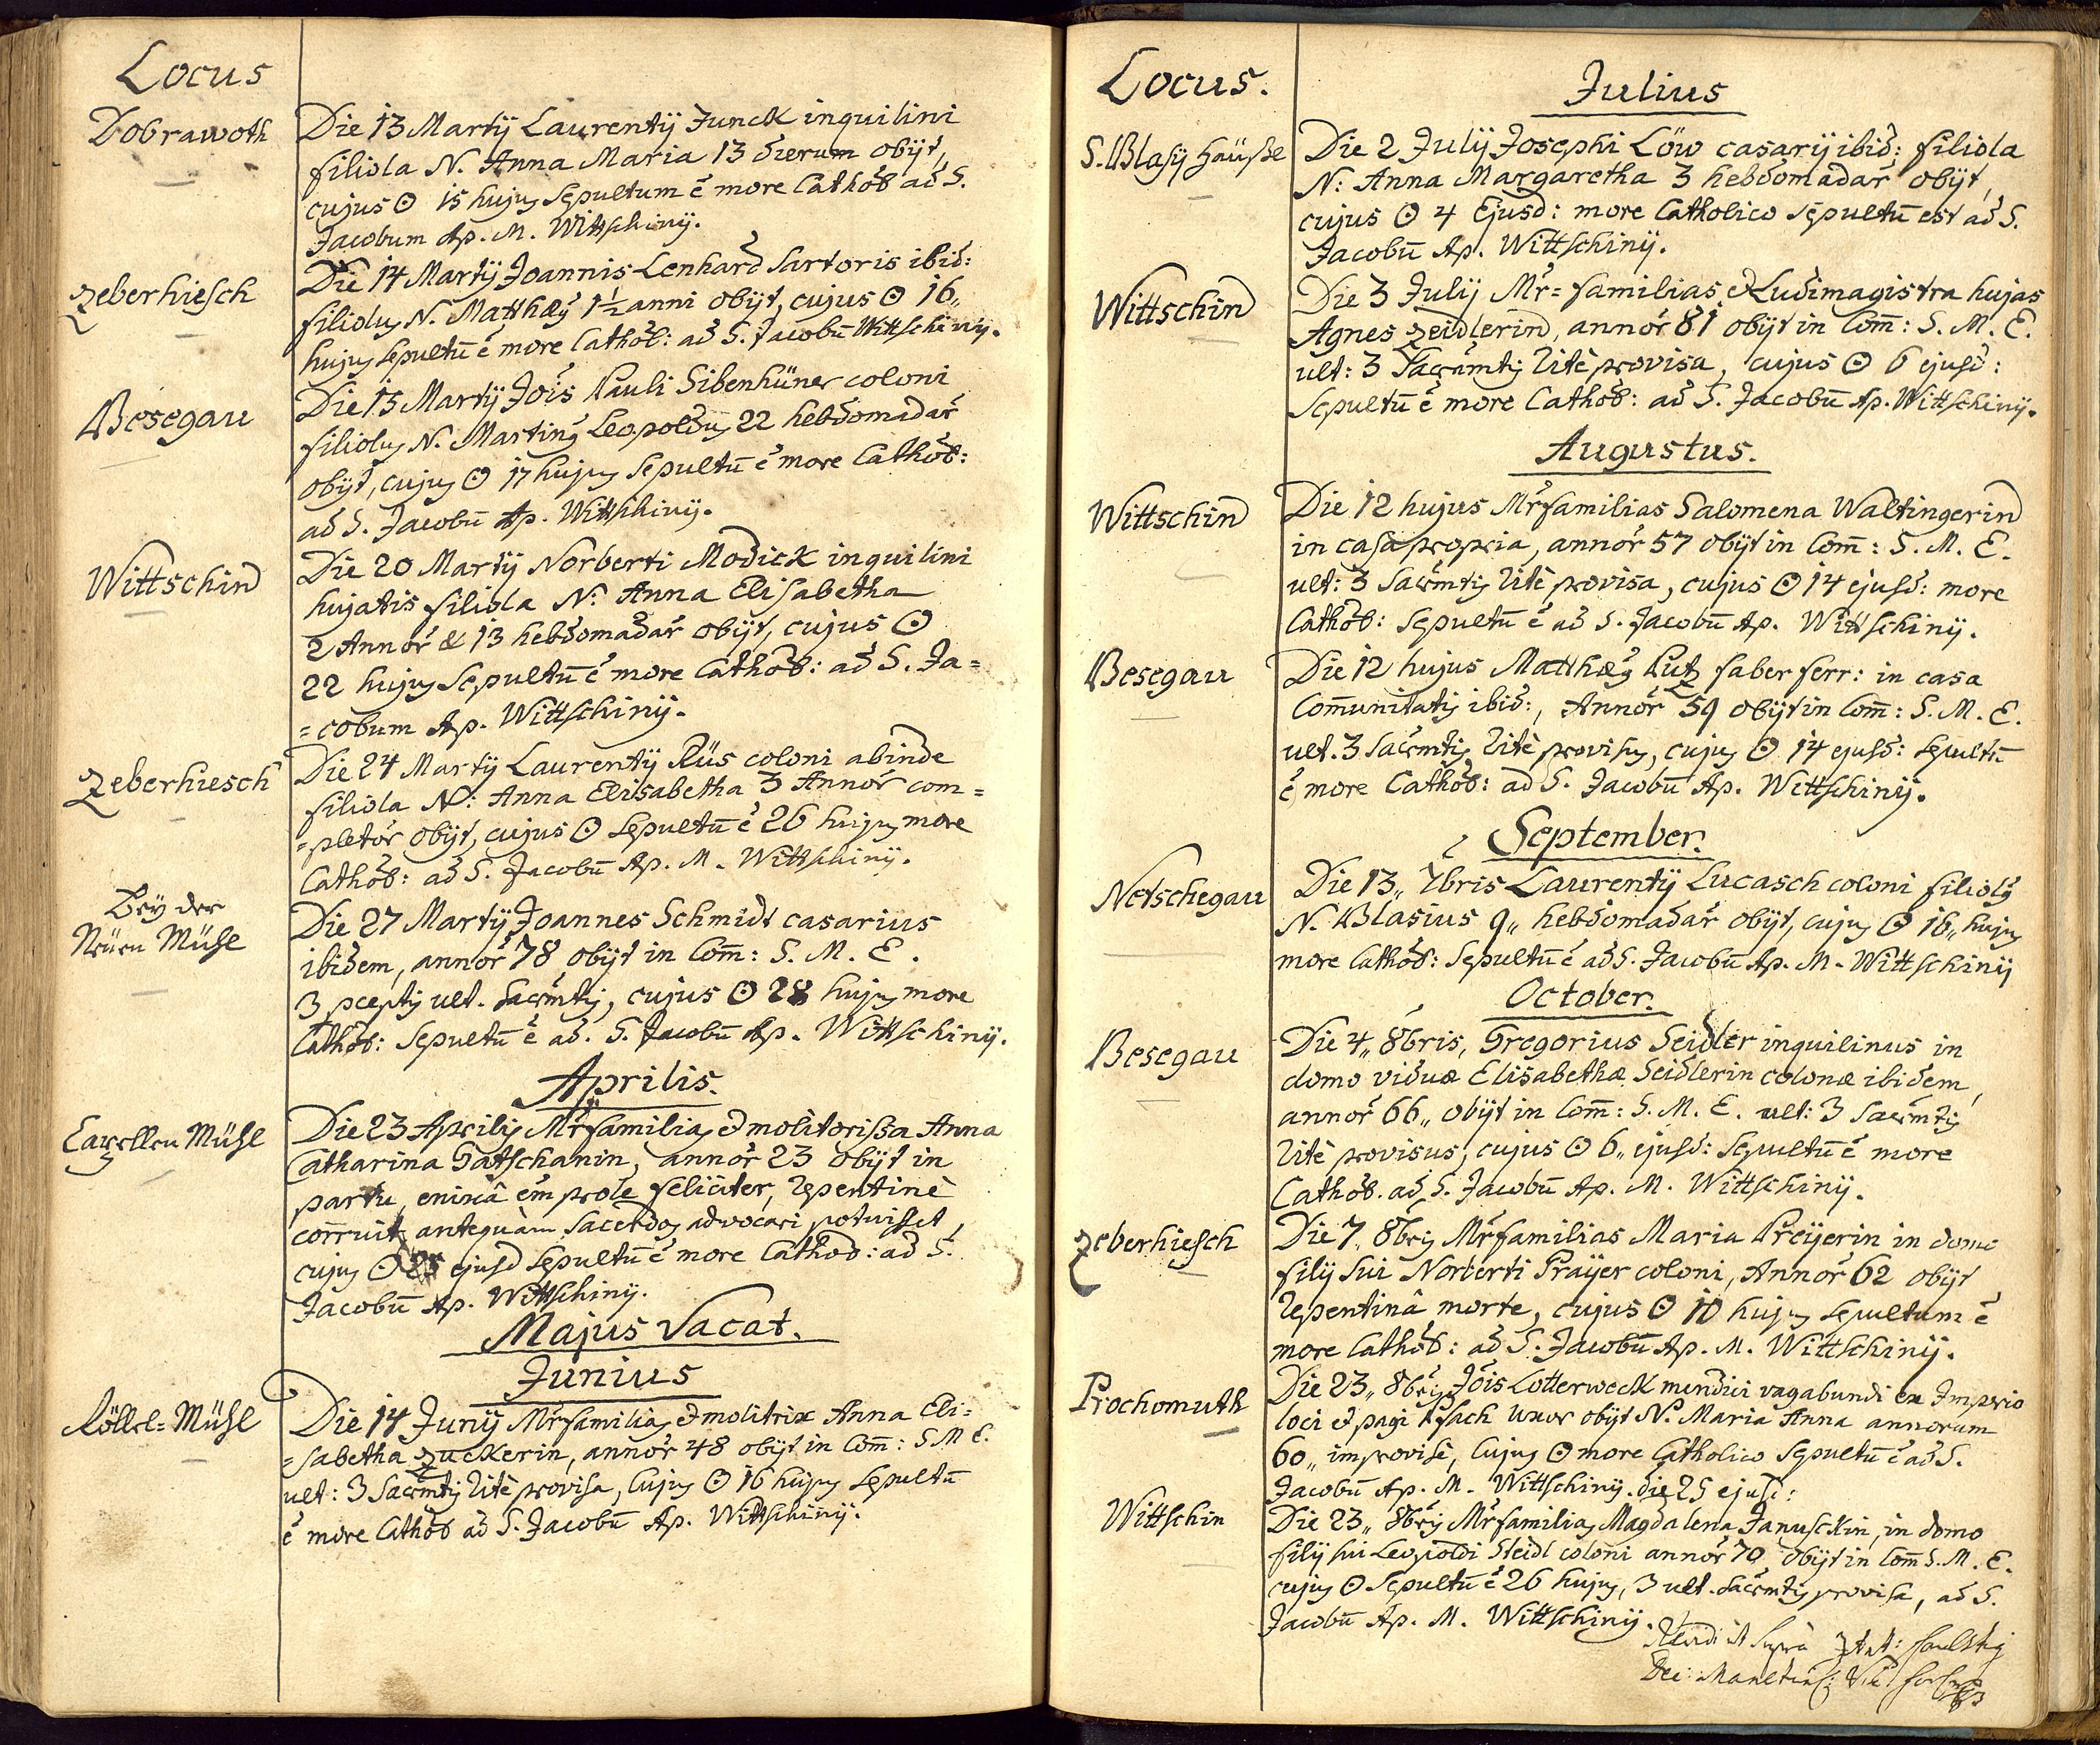 Locus
Dobrawoth
Die 13 Martÿ Laurentÿ Junck inquilini
filiola N. Anna Maria 13 dierum obÿt,
cujus ʘ 15 hujus Sepultum ē more Cathol ad S.
Jacobum Ap. M. Wittschinÿ.
Zeberhiesch
Die 14 Martÿ Joannis Lenhard Sartoris ibid:
filiolus N. Matthæus 1½ anni obÿt, cujus ʘ 16,,
hujus Sepultū ē more Cathol: ad S. Jacobū Wittschinÿ.
Besegau
Die 15 Martÿ Jōis Pauli Sibenhüner coloni
filiolus N. Martinus Leopoldus 22 hebdomadar̄
obÿt, cujus ʘ 17 hujus Sepultū ē more Cathol:
ad S. Jacobū Ap. Wittschinÿ.
Wittschin
Die 20 Martÿ Norberti Modick inquilini
hujatis filiola N. Anna Elisabetha
2 Annor̄ & 13 hebdomadar̄ obÿt, cujus ʘ
22 hujus Sepultū ē more Cathol: ad S. Ja=
=cobum Ap. Wittschinÿ.
Zeberhiesch
Die 24 Martÿ Laurentÿ Rüs coloni abinde
filiola N: Anna Elisabetha 3 Annor̄ com=
=pletor̄ obÿt, cujus ʘ Sepultū ē 26 hujus more
Cathol: ad S. Jacobū Ap. M. Wittschinÿ.
Beÿ der
Neüen Mühl
Die 27 Martÿ Joannes Schmidt casarius
ibidem, annor̄ 78 obÿt in Com̄: S. M. E.
3 pceptis ult. Sacr̄mtis, cujus ʘ 28 hujus more
Cathol: Sepultū ē ad. S. Jacobū Ap. Wittschinÿ.
Aprilis.
Capellen Mühl
Die 23 Aprilis Mr̄familias et molitorissa Anna
Catharina Gatschanin, annor̄ 23 obÿt in
partu, enixâ em̄ prole feliciter, repentinè
corruit antequàm Sacerdos advocari potuisset,
cujus ʘ 25 ejusd Sepultū ē more Cathol: ad S.
Jacobū Ap. Wittschinÿ.
Majus Vacat.
Junius
Röllel=Mühl
Die 14 Junÿ Mr̄familias et molitrix Anna Eli=
=sabetha Zuckerin, annor̄ 48 obÿt in Com̄: S M E.
ult: 3 Sacr̄mtis ritè provisa, cujus ʘ 16 hujus Sepultū
ē more Cathol ad S. Jacobū Ap. Wittschinÿ.
Locus.
Julius
S. Blasÿ Häüssl
Die 2 Julÿ Josephi Löw casarÿ ibid: filiola
N: Anna Margaretha 3 hebdomadar̄ obÿt,
cujus ʘ 4 Ejusd: more Catholico Sepultū est ad S.
Jacobū Ap. Wittschinÿ.
Wittschin
Die 3 Julÿ Mr̄=familias et Ludimagistra hujas
Agnes Zeidlerin, annor̄ 81 obÿt in Com̄: S. M. E.
ult: 3 Sacr̄mtis ritè provisa, cujus ʘ 6 ejusd:
Sepultū ē more Cathol: ad S. Jacobū Ap. Wittschinÿ.
Augustus.
Wittschin
Die 12 hujus Mr̄familias Salomena Waltingerin
in casa propria, annor̄ 57 obÿt in Com̄: S. M. E.
ult: 3 Sacr̄mtis ritè provisa, cujus ʘ 14 ejusd: more
Cathol: Sepultū ē ad S. Jacobū Ap. Wittschinÿ.
Besegau
Die 12 hujus Matthæus Putz faber ferr: in casa
Com̄unitatis ibid:, Annor̄ 59 obÿt in Com̄: S. M. E.
ult. 3 Sacr̄mtis ritè provisus, cujus ʘ 14 ejusd: Sepultū
ē more Cathol: ad S. Jacobū Ap. Wittschinÿ.
September.
Netschegau
Die 13,, 7bris Laurentÿ Lucasch coloni filiolus
N. Blasius 9,, hebdomadar̄ obÿt, cujus ʘ 16,, hujus
more Cathol: Sepultū ē ad S. Jacobū Ap. M. Wittschinÿ
October.
Besegau
Die 4,, 8bris, Gregorius Seidler inquilinus in
domo viduæ Elisabethæ Seidlerin colonæ ibidem,
annor̄ 66,, obÿt in Com̄: S. M. E. ult: 3 Sacr̄mtis
ritè provisus, cujus ʘ 6,, ejusd: Sepultū ē more
Cathol. ad S. Jacobū Ap. M. Wittschinÿ.
Zeberhiesch
Die 7,, 8bris Mr̄familias Maria Preÿerin in domo
filÿ sui Norberti Praÿer coloni, Annor̄ 62 obÿt
repentinâ morte, cujus ʘ 10 hujus Sepultum ē
more Cathol: ad S. Jacobū Ap. M. Wittschinÿ.
Prochomuth
Die 23,, 8bris Jōis Lotterweck mendici vagabundi ex Imperio
loci et pagi uxor obÿt N. Maria Anna annorum
60,, improvisè, cujus ʘ more Catholico Sepultū ē ad S.
Jacobū Ap. M. Wittschinÿ. die 25 ejusd:
Wittschin
Die 23,, 8bris Mr̄familias Magdalena Januschkin, in domo
filÿ sui Leopoldi Steidl coloni annor̄ 70 obÿt in Com̄ S. M. E.
cujus ʘ Sepultū ē 26 hujus, 3 ult. Sacr̄mtis provisa, ad S.
Jacobū Ap. M. Wittschinÿ.
Revidi ut Supra